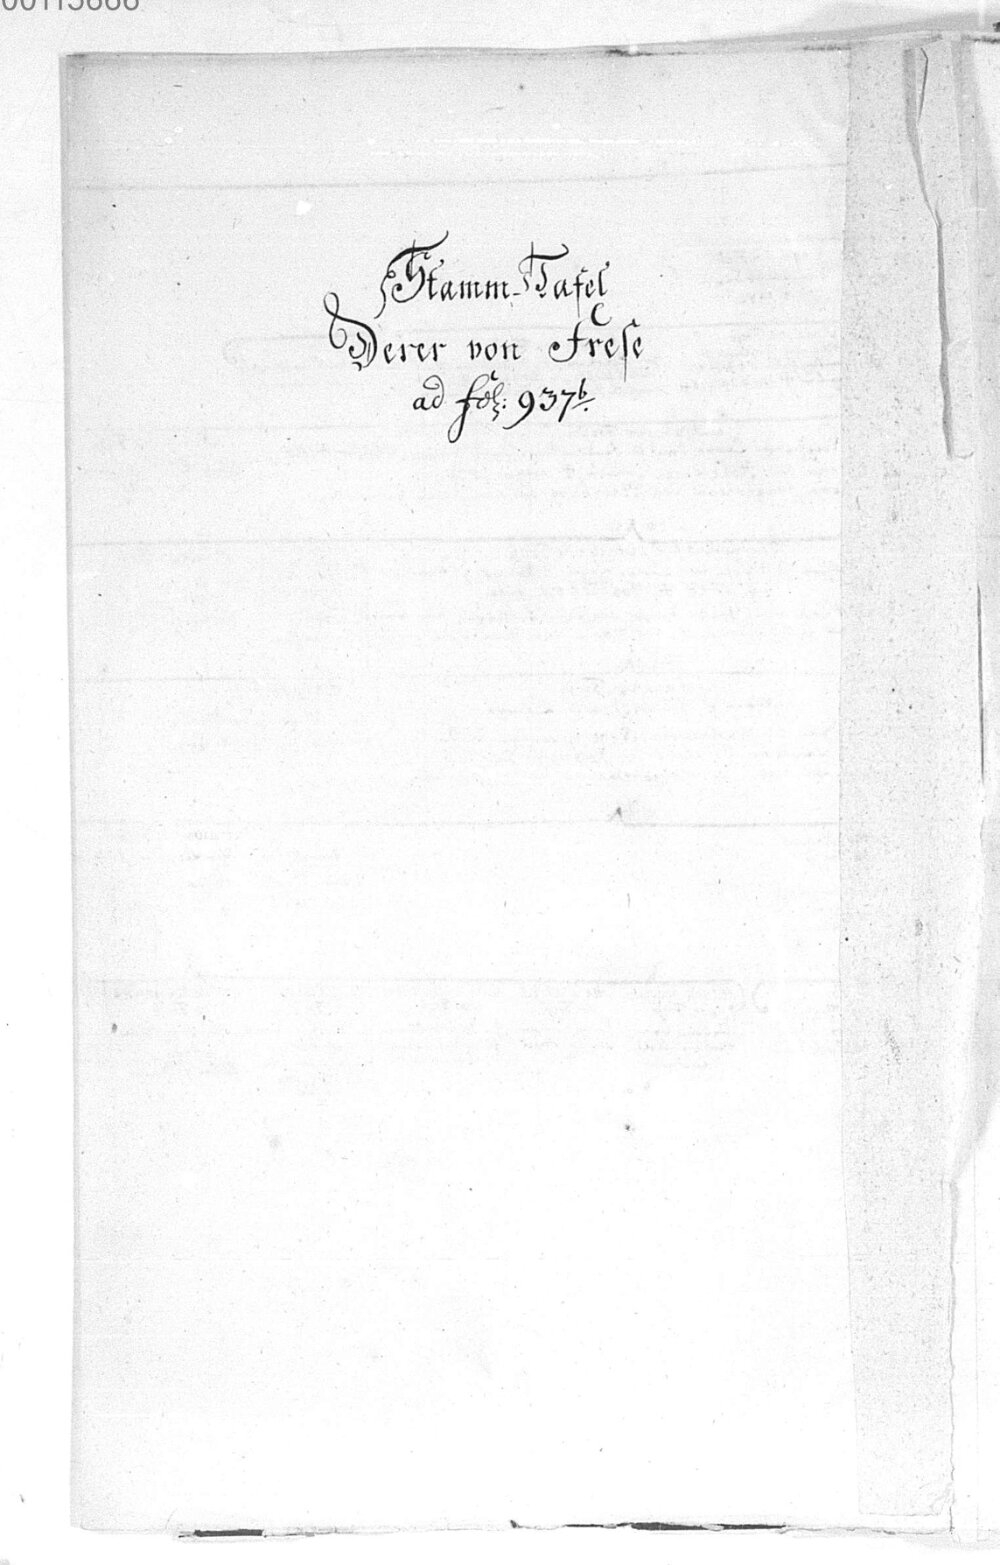 Stamm-Tafel
Derer von Frese
ad fol: 937b.